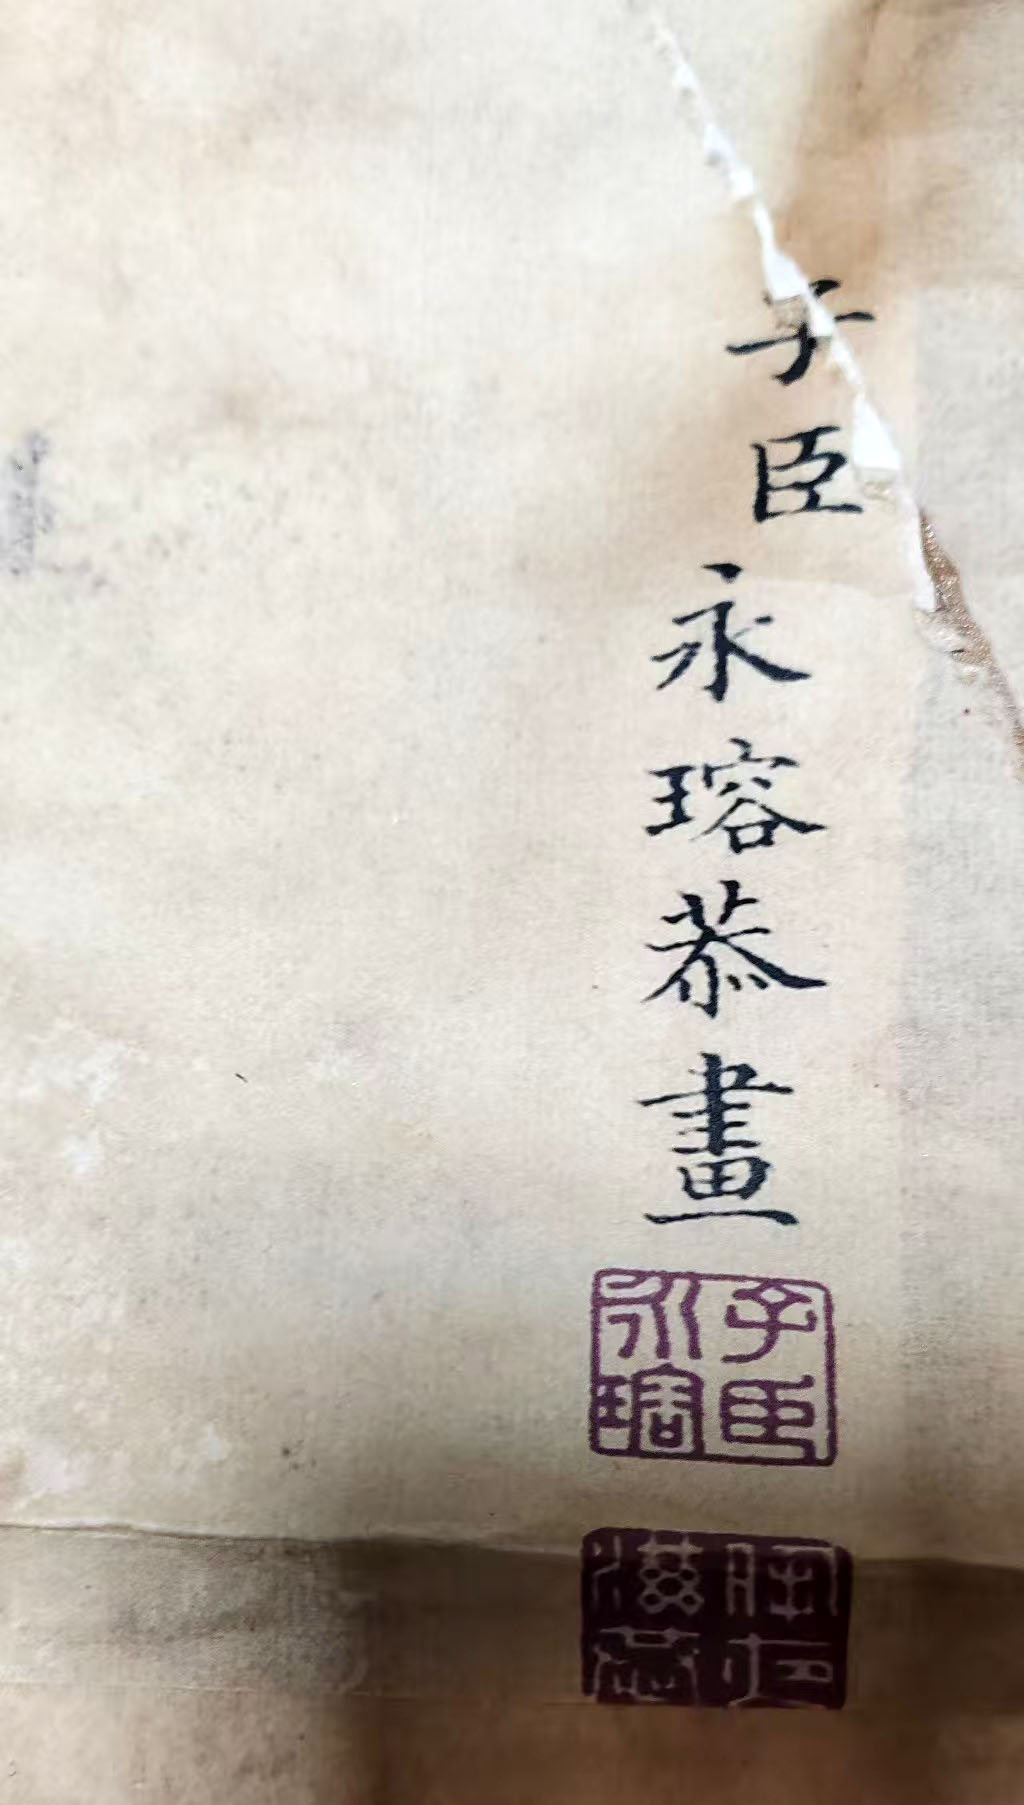 子臣永瑢恭畫
子臣
永瑢